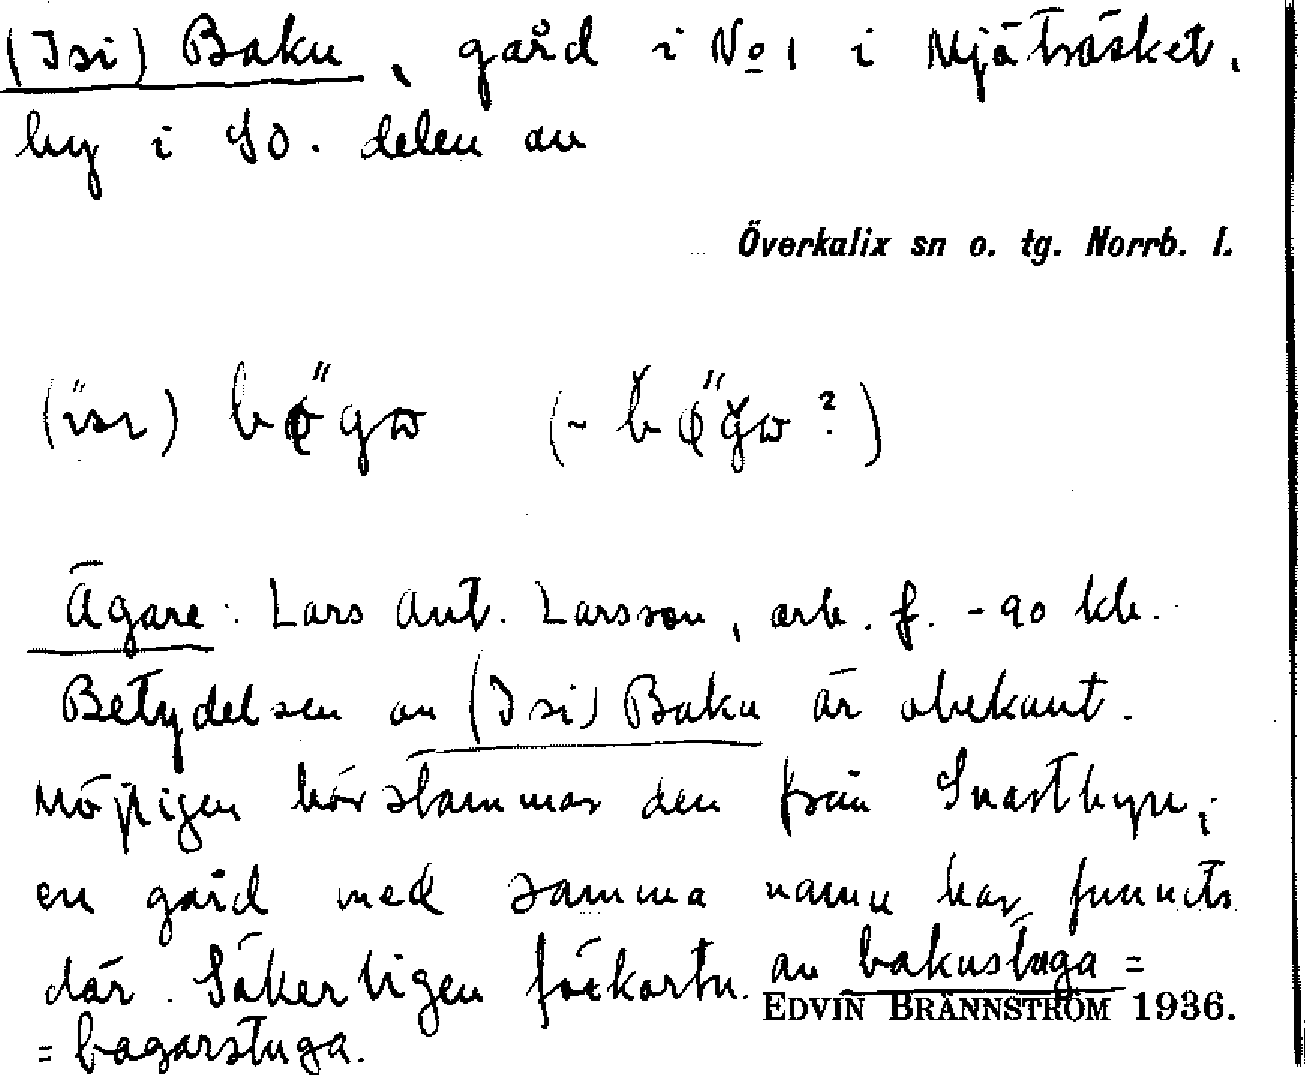 (Isi) Baku, gård i No 1 i Mjöträsket,
by i SO. delen av
Överkalix sn o. tg. Norrb. l.
Ägare: Lars Ant. Larsson, arb. f. -90
Betydelsen av (Isi) Baku är obekant.
Möjligen härstammar den från Svartbyn;
en gård med samma namn har funnits
där. Säkerligen förkortn. av bakustuga =
EDVIN BRÄNNSTRÖM 1936.
= bagarstuga.